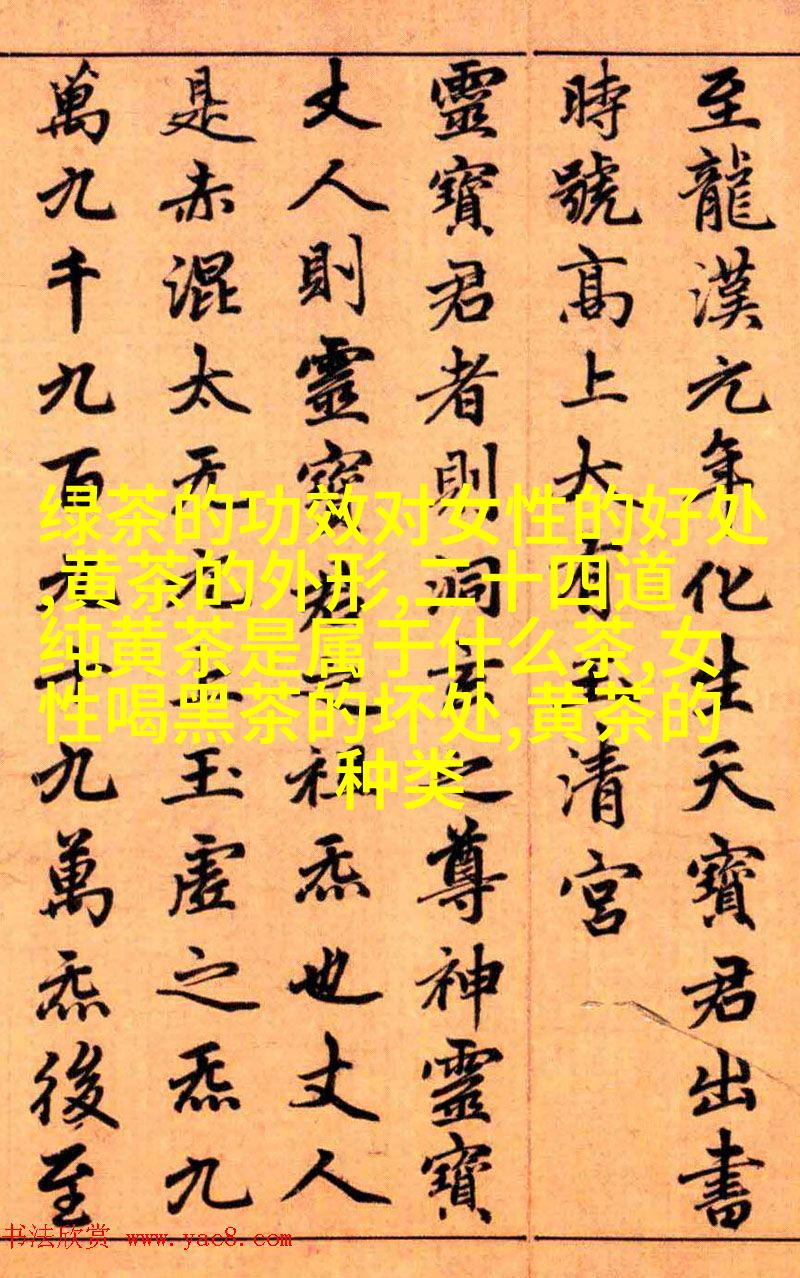 至龍漢元年化生天寶君出書
時號高上大有玉清宮
靈寶君者則洞玄之尊神靈寶
丈人則靈寶君之祖炁也丈人
是赤混太无元上玉虛之炁九
萬九千九百九十九萬炁後至
绿茶的功效对女性的好处
,黄茶的外形,二十四道
纯黄茶是属于什么茶,女
性喝黑茶的坏处,黄茶的
种类
书法欣赏 www.yac8.com